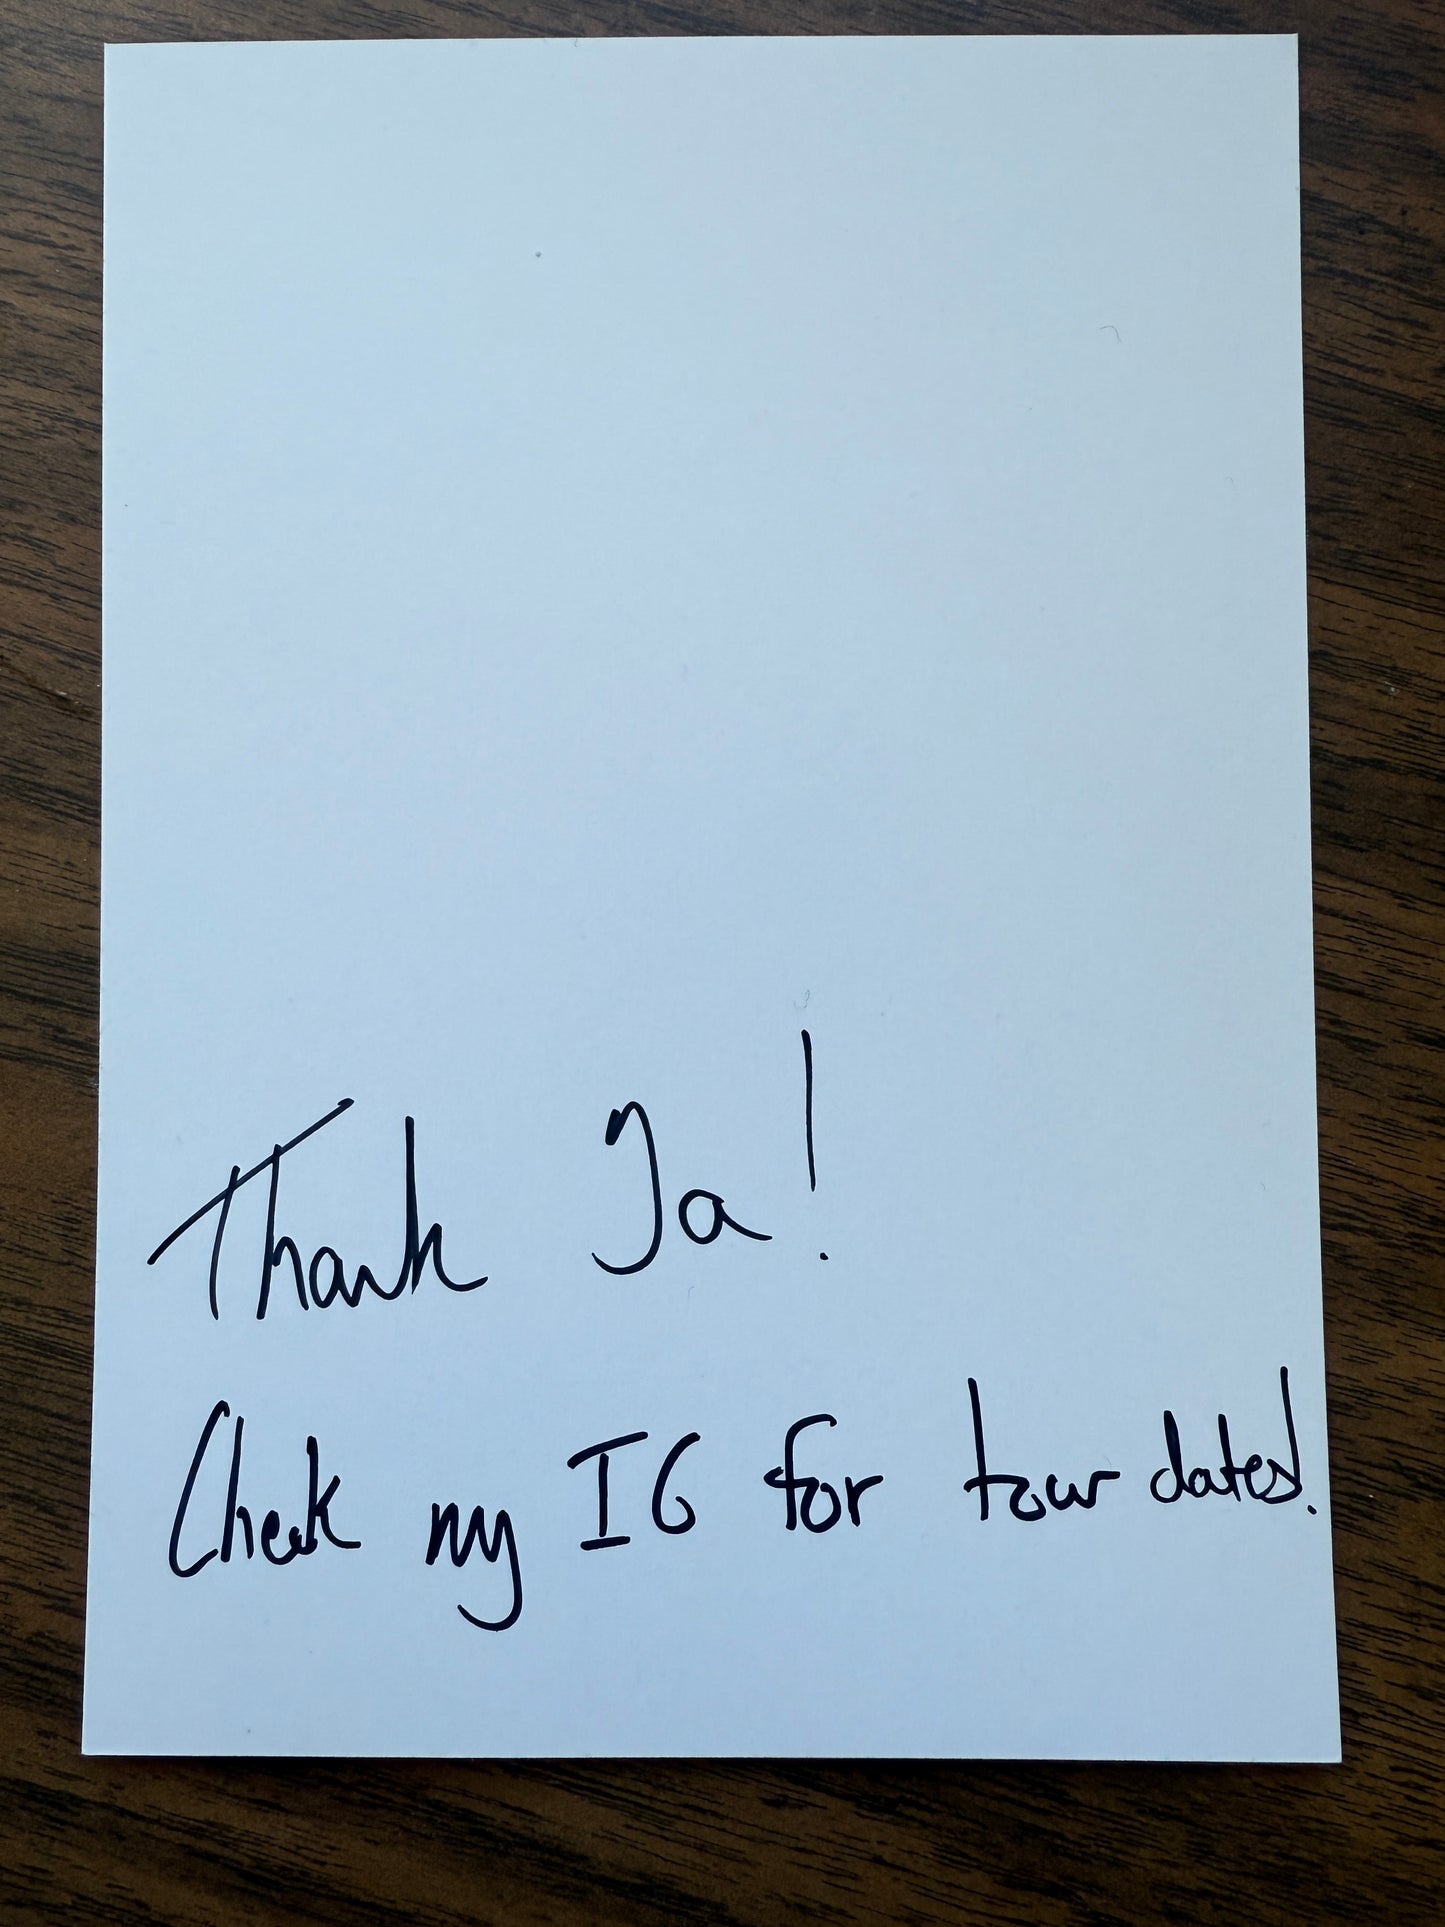 Thank Ya!
Check my IG for tour dates!